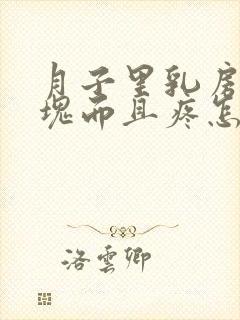 月子里乳房
块而且疼怎
洛雲卿